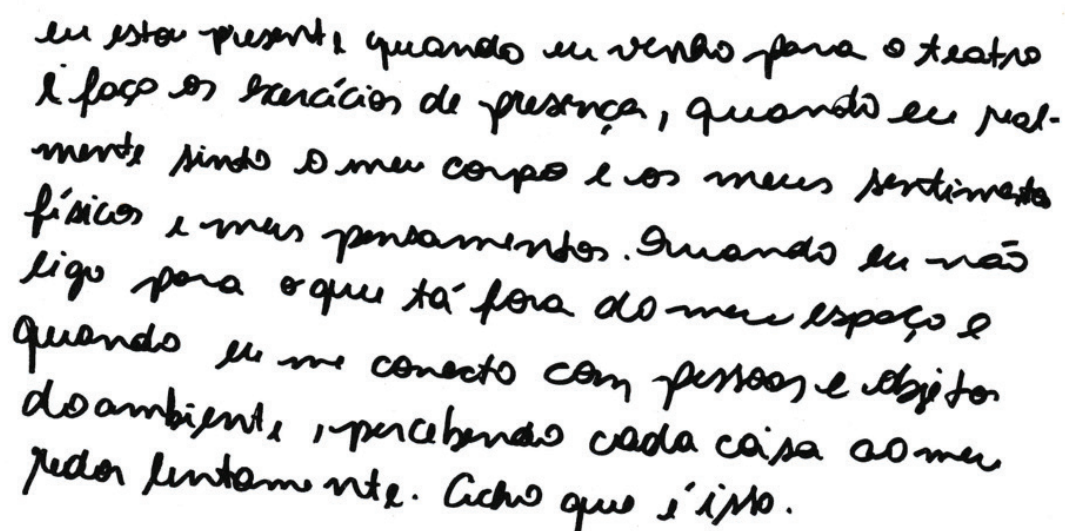 eu estou presente quando eu venho para o teatro
e faço os exercícios de presença, quando eu real-
mente sinto o meu corpo e os meus sentimentos
físicos e meus pensamentos. Quando eu não
ligo para o que tá fora do meu espaço e
quando eu me conecto com pessoas e objetos
do ambiente, percebendo cada coisa ao meu
redor lentamente. Acho que é isso.